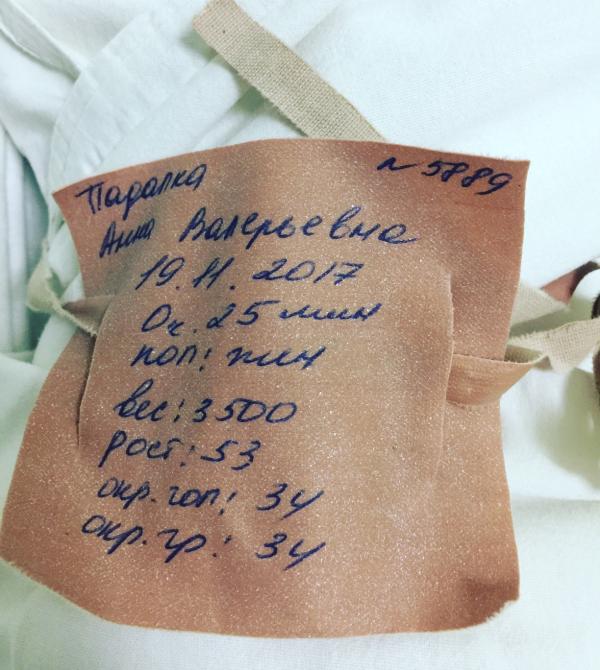 Падалка n 5889
Анна Валерьевна
19.11.2017
0ч. 25 мин
пол: жин
вес: 3500
рост: 53
окр. гол: 34
окр. гр.: 34